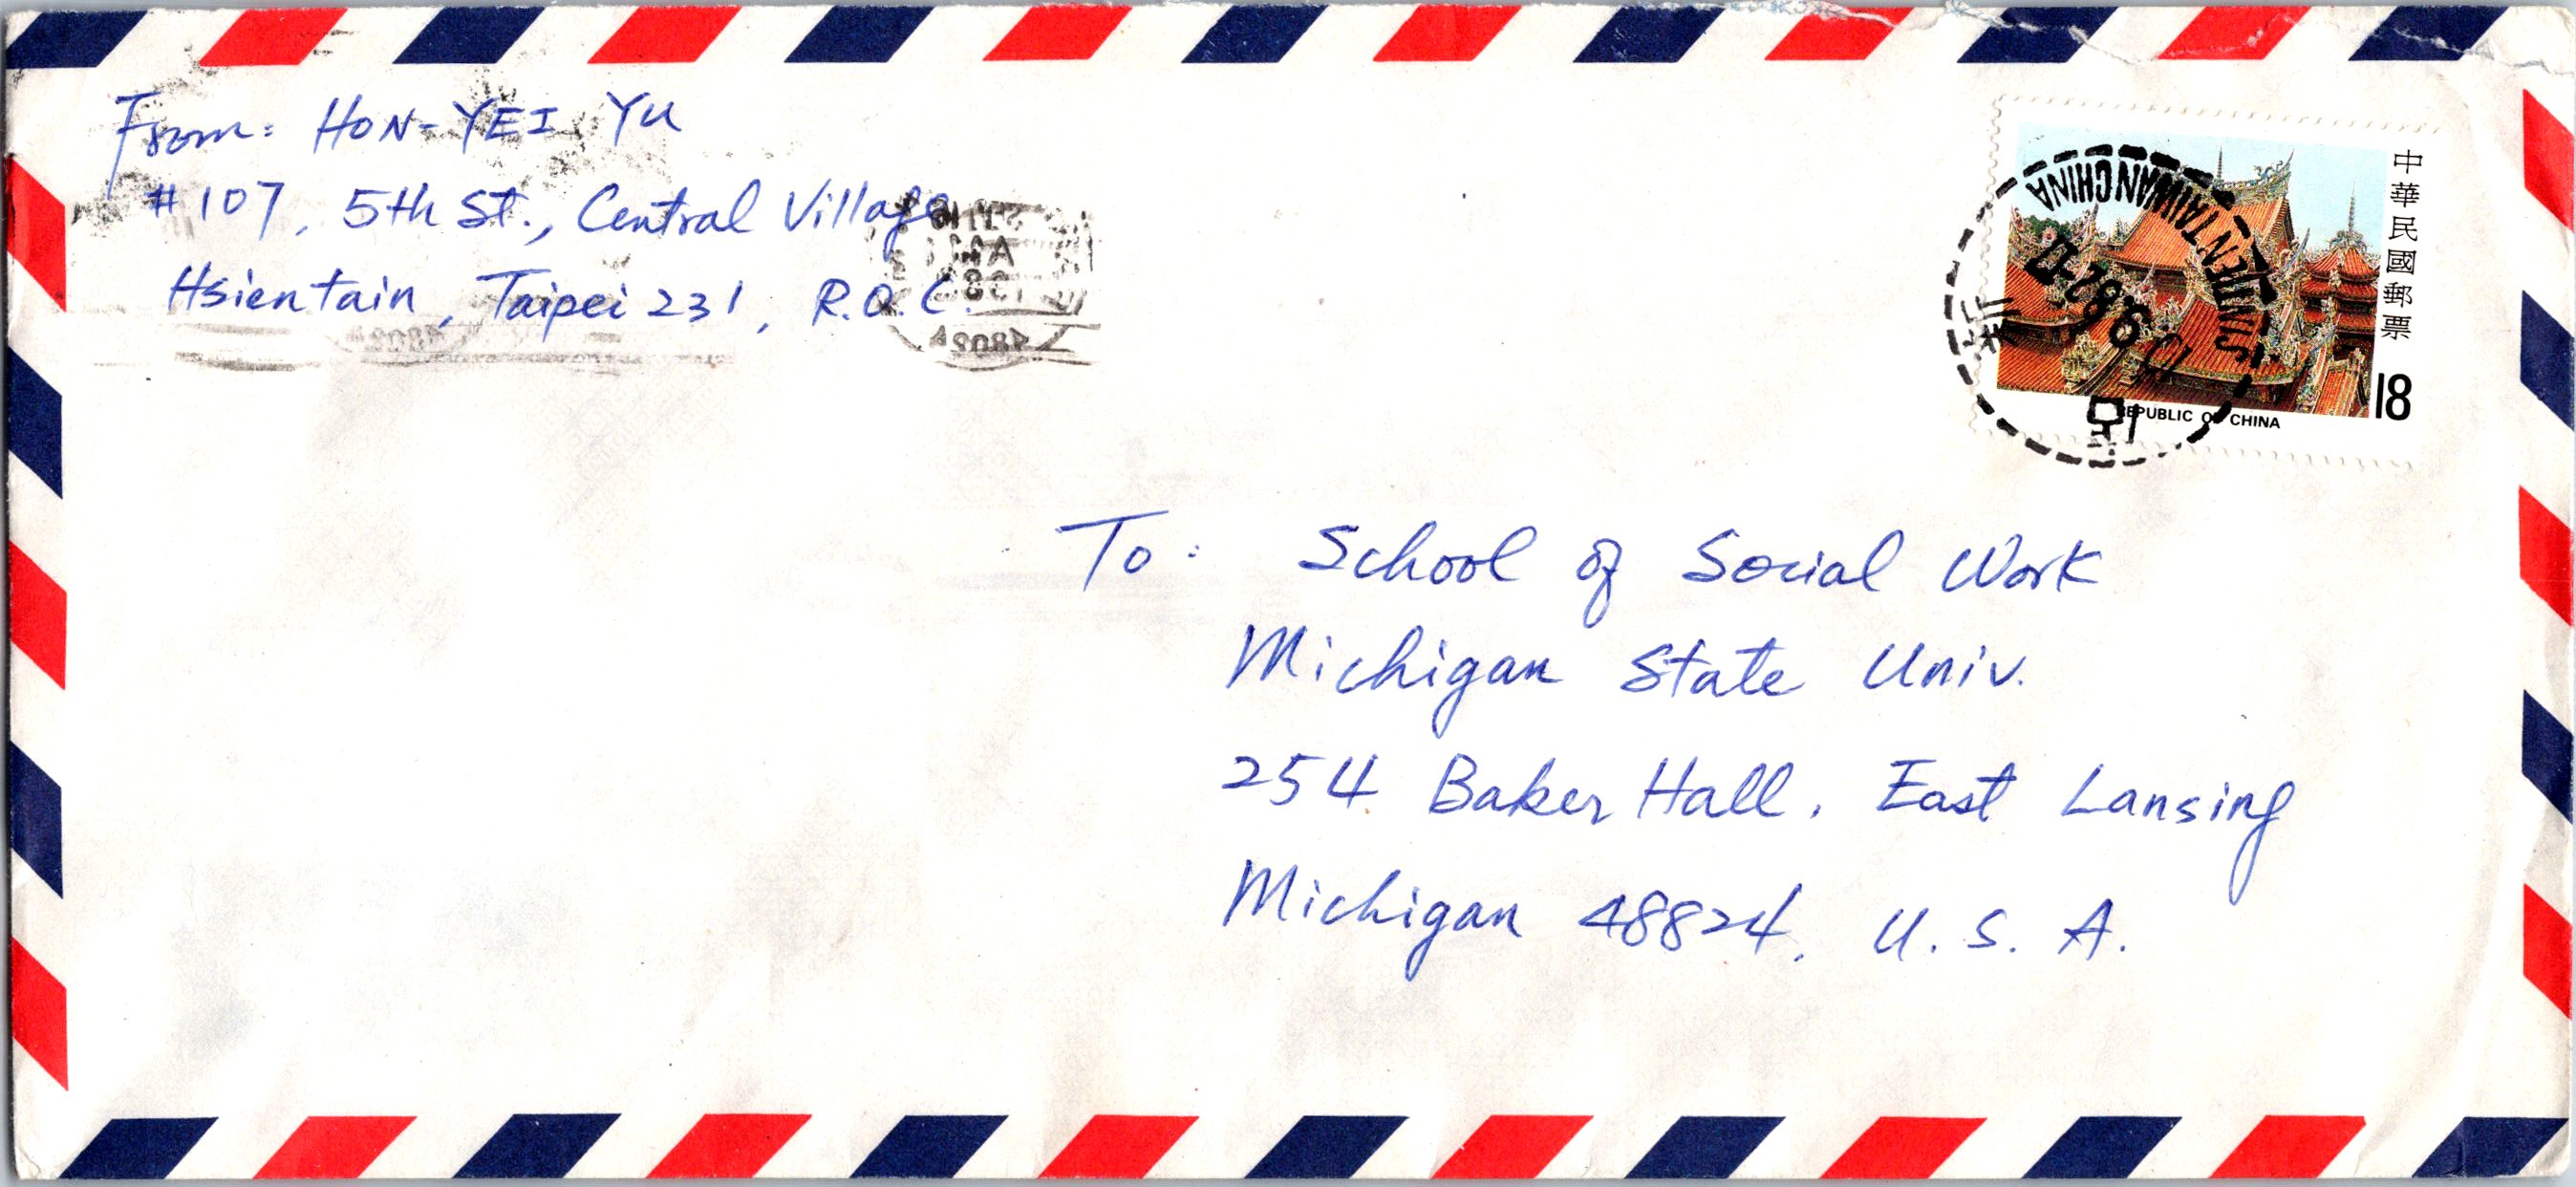 From: HON-YEI YU
#107, 5th St., Central Village
Hsientain, Taipei 231, R.O.C.
中華民國郵票
18
REPUBLIC OF CHINA
SINTIEN TAIWAN CHINA
To: School of Social Work
Michigan State Univ.
254 Baker Hall, East Lansing
Michigan 48824, U.S.A.